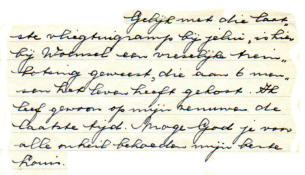 Gelijk met die laat-
ste vliegtuigramp bij jelui, is hier
bij Woensel een vreselijke trein-
botsing geweest, die aan 6 men-
sen het leven heeft gekost. Ik
leef gewoon op mijn zenuwen de
laatste tijd. Moge God je voor
alle onheil behoeden mijn beste
Louis.